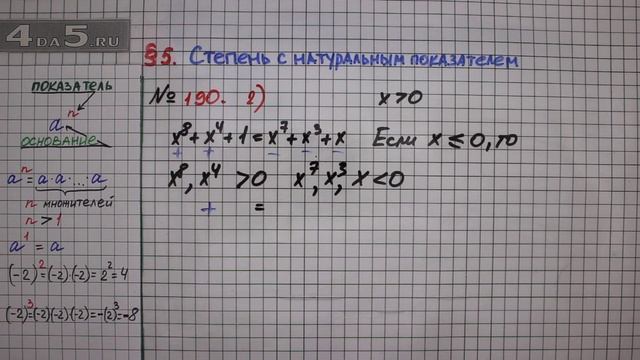 4DA5.RU
§5. Степень с натуральным показателем
показатель
aⁿ
основание
aⁿ = a·a·...·a
n множителей
n > 1
a¹ = a
(-2)² = (-2)·(-2) = 2² = 4
(-2)³ = (-2)(-2)·(-2) = -(2)³ = -8
№ 190. 2)
x > 0
x⁸ + x⁴ + 1 = x⁷ + x³ + x Если x ≤ 0, то
+ + - - -
x⁸, x⁴ > 0 x⁷, x³, x < 0
+ =